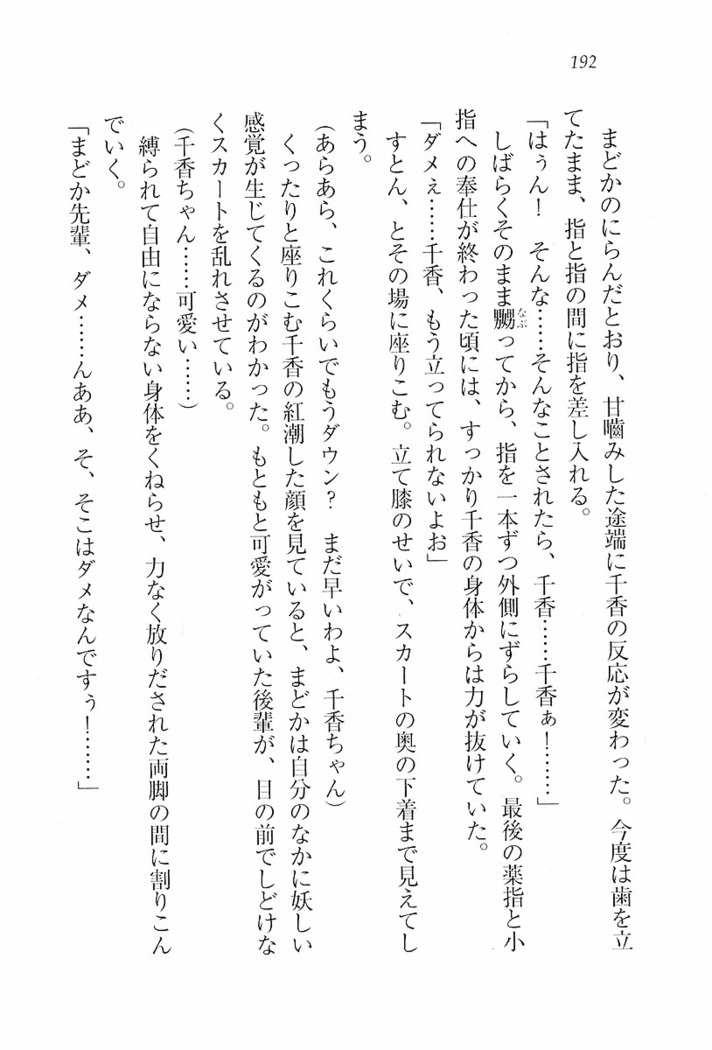 192
まどかのにらんだとおり、甘嚙みした途端に千香の反応が変わった。今度は歯を立
てたまま、指と指の間に指を差し入れる。
「はぅん！　そんな……そんなことされたら、千香……千香ぁ！……」
しばらくそのまま嬲ってから、指を一本ずつ外側にずらしていく。最後の薬指と小
なぶ
指への奉仕が終わった頃には、すっかり千香の身体からは力が抜けていた。
「ダメぇ……千香、もう立ってられないよお」
すとん、とその場に座りこむ。立て膝のせいで、スカートの奥の下着まで見えてし
まう。
(あらあら、これくらいでもうダウン？　まだ早いわよ、千香ちゃん)
くったりと座りこむ千香の紅潮した顔を見ていると、まどかは自分のなかに妖しい
感覚が生じてくるのがわかった。もともと可愛がっていた後輩が、目の前でしどけな
くスカートを乱れさせている。
(千香ちゃん……可愛い……)
縛られて自由にならない身体をくねらせ、力なく放りだされた両脚の間に割りこん
でいく。
「まどか先輩、ダメ……んああ、そ、そこはダメなんですぅ！……」